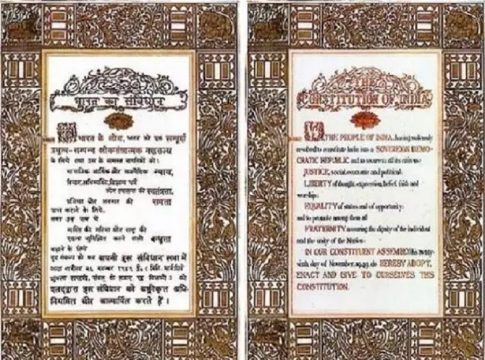 भारत का संविधान
हम भारत के लोग, भारत को एक सम्पूर्ण
के लिये तथा उस के समस्त नागरिकों को:
सामाजिक आर्थिक और राजनैतिक न्याय,
और उपासना की स्वतंत्रता,
प्रतिष्ठा और अवसर की समता
प्राप्त कराने के लिये,
तथा उन सब में
व्यक्ति की गरिमा और राष्ट्र की
एकता सुनिश्चित करने वाली बन्धुता
बढ़ाने के लिये
दृढ़ संकल्प हो कर अपनी इस संविधान सभा में
आज तारीख २६ नवम्बर १९४९ ई०
इस संविधान को अङ्गीकृत अधि-
नियमित और आत्मार्पित करते हैं।
THE
CONSTITUTION OF INDIA
WE, THE PEOPLE OF INDIA, having solemnly
resolved to constitute India into a SOVEREIGN DEMO-
CRATIC REPUBLIC and to secure to all its citizens:
JUSTICE, social, economic and political;
LIBERTY of thought, expression, belief, faith and
worship;
EQUALITY of status and of opportunity;
and to promote among them all
FRATERNITY assuring the dignity of the individual
and the unity of the Nation;
IN OUR CONSTITUENT ASSEMBLY this twenty-
sixth day of November, 1949, do HEREBY ADOPT,
ENACT AND GIVE TO OURSELVES THIS
CONSTITUTION.